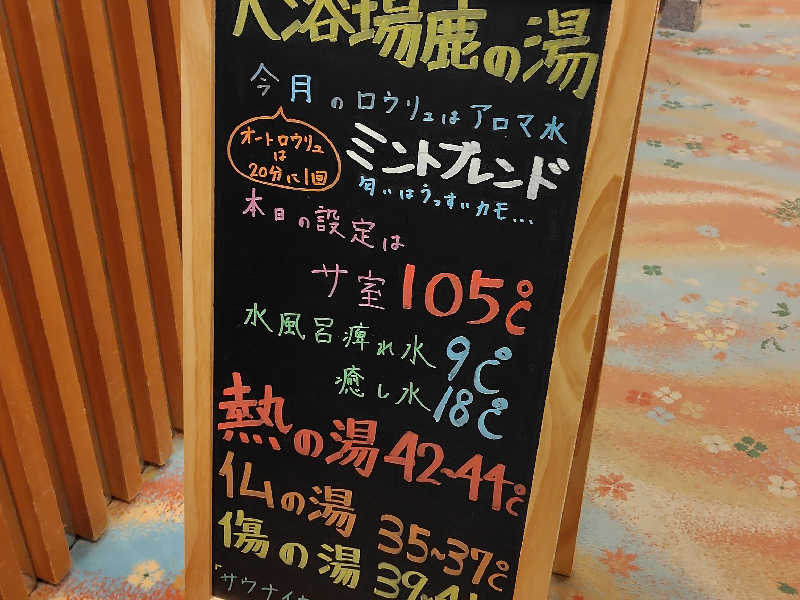 大浴場鹿の湯
今月のロウリュはアロマ水
オートロウリュ
は
20分に1回
ミントブレンド
匂いはうっすいカモ...
本日の設定は
サ室 105℃
水風呂痺れ水 9℃
癒し水 18℃
熱の湯 42~44℃
仏の湯 35~37℃
傷の湯 39~41
「サウナイ